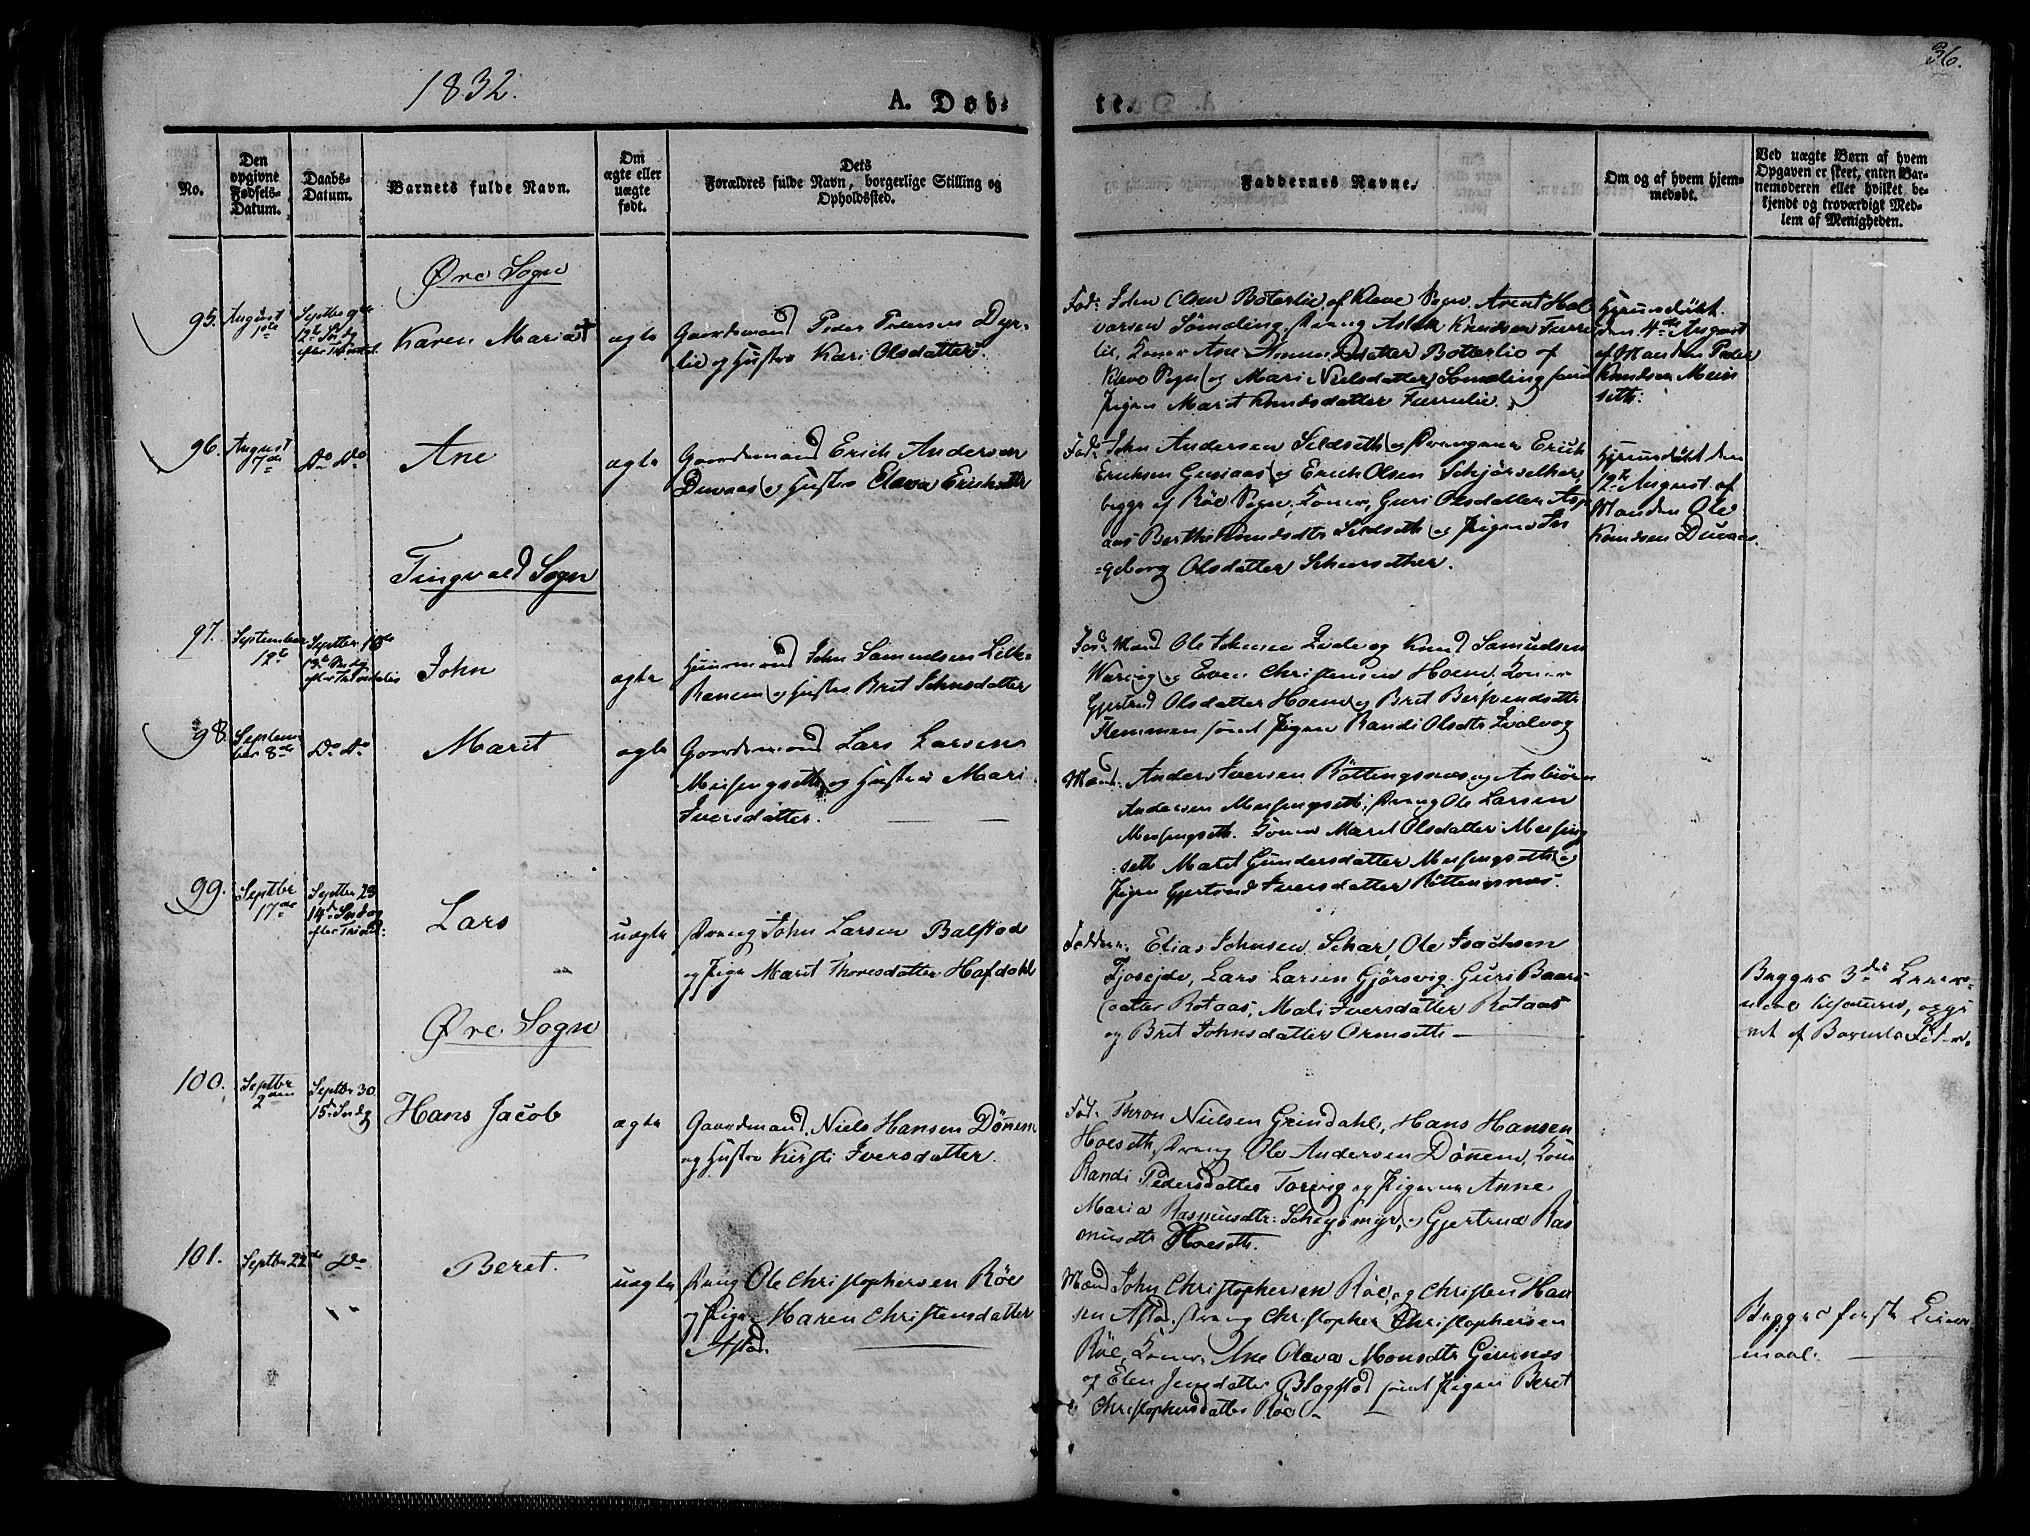 36.
1832.
A. Døb-
te.
No.
Den
opgivne
Fødsels-
Datum.
Daabs-
Datum.
Barnets fulde Navn.
Om
ægte eller
uægte
født.
Dets
Forældres fulde Navn, borgerlige Stilling og
Opholdssted.
Faddernes Navne.
Om og af hvem hjem-
medøbt.
Ved uægte Børn af hvem
Opgaven er skeet, enten Bar-
nemoderen eller hvilket be-
kjendt og troværdigt Med-
lem af Menigheden.
Øre Sogn
95.
August
1ste
Septbr 9de
12te Sndg
efter Trinitat.
Karen Maria
ægte
Gaardmand Peder Pedersen Dyr-
lie og Hustro Kari Olsdatter.
Fad: John Olsen Boterlie af Kleve Sogn, Arent Hal
varsen Sømeling, Dreng Aslak Knudsen Furre
lie, Koner Ane datter Botterlie af
Kleve Sogn og Mari Nielsdatter Sømeling samt
Pigen Marit Knudsdatter Furrelie.
Hjemdøbt
den 4de August
af Manden Peder
Knudsen Mein
seth.
96.
August
7de
Do Do
Ane
ægte
Gaardmand Erich Andersen
Duvaas og Hustro Olava Erichsdtr
Fad: John Andersen Sildseth og Drengene Erich
Erichsen Gusiaas og Erich Olsen
begge af Røe Sogn, Koner, Guri Olsdatter Asp
aas Berthe Knudsdtr Sildseth og Pigen In
geborg Olsdatter
Hjemdøbt den
12te August af
Manden Ole
Knudsen Duvaas.
Tingvold Sogn
97.
September
12te
Septbr 16de
13de Sndg
efter Trinitatis
John
ægte
Huusmand John Samuelsen Lille-
Ranem og Hustro Brit Johnsdatter
Fad: Mænd Ole Johnsen Hvalvog Knud Samuelsen
Waavog og Even Christensen Hoem, Koner
Gjertrud Olsdatter Hoem og Brit
samt Pigen Randi Olsdtr Hvalvog
98.
Septem
ber 8de
Do Do
Marit
ægte
Gaardmand Lars Larsen
Meisingseth og Hustro Mari
Iversdatter.
Mænd: Anders Iversen Røttingsnæs og Anbiørn
Andersen Meisingseth, Dreng Ole Larsen
Meisingseth. Koner Marit Olsdatter Meising
seth Marit Gundersdatter Meisingseth og
Pigen Gjertrud Iversdatter Røttingsnæs.
99.
Septbr
17de
Septbr 23
14de Sndag
efter Trinit:
Lars
uægte
Dreng John Larsen Balstad
og Pige Marit Thoresdatter Hafdahl
Faddere: Elias Johnsen Schar, Ole Isachsen
Fjoseide, Lars Larsen Gjørsvig, Guri Baars
datter Rotaas, Mali Iversdatter Rotaas
og Brit Johnsdatter Ormseth
Begges 3die Leier-
opgi
vet af Barnets Fader.
Øre Sogn
100.
Septbr
2den
Septbr 30
15de Sndg
Hans Jacob
ægte
Gaardmand, Niels Hansen Dønem
og Hustro Kirsti Iversdatter.
Fad: Thron Nielsen Grindahl, Hans Hansen
Hoeseth, Dreng Ole Andersen Dønem, Kone
Randi Pedersdatter Torvig og Pigerne Anne
Maria Rasmusdtr: og Gjertrud Ras
musdtr Hoeseth.
101.
Septbr 22de
Do
Beret.
uægte
Dreng Ole Christophersen Røe
og Pige Maren Christensdatter
Astad.
Mænd John Christophersen Røe, og Christen Han
sen Astad, Dreng Christopher Christophersen
Røe, Koner Ane Olava Monsdtr Gimnæs
og Elen Jensdatter Blagstad samt Pigen Beret
Christophersdatter Røe
Begges første Leier
maal.